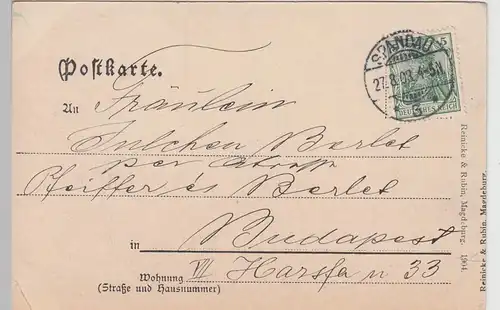 Postkarte.
SPANDAU
27.8.03. 4-5N
5
DEUTSCHES REICH
An Fräulein
Julchen Berlet
per
Pfeiffer és Berlet
in Budapest
Wohnung VII Harsfa u 33
(Straße und Hausnummer)
Reinicke & Rubin, Magdeburg. 1904.
Reinicke & Rubin, Magdeburg.